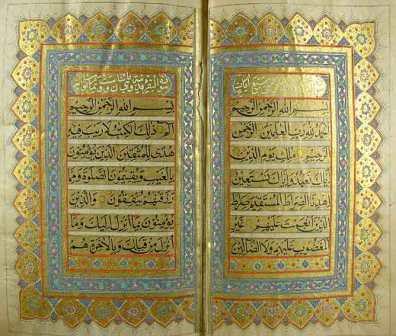 سبع آيات
بسم الله الرحمن الرحيم
الحمد لله رب العالمين الرحمن
الرحيم ملك يوم الدين
اياك نعبد واياك نستعين
اهدنا الصراط المستقيم صراط
الذين انعمت عليهم غير
المغضوب عليهم ولا الضالين
سورة البقرة
بسم الله الرحمن الرحيم
الم ذلك الكتب لا ريب فيه
هدى للمتقين الذين يؤمنون
بالغيب ويقيمون الصلوة ومما
رزقنهم ينفقون والذين
يؤمنون بما انزل اليك وما
انزل من قبلك وبالاخرة هم